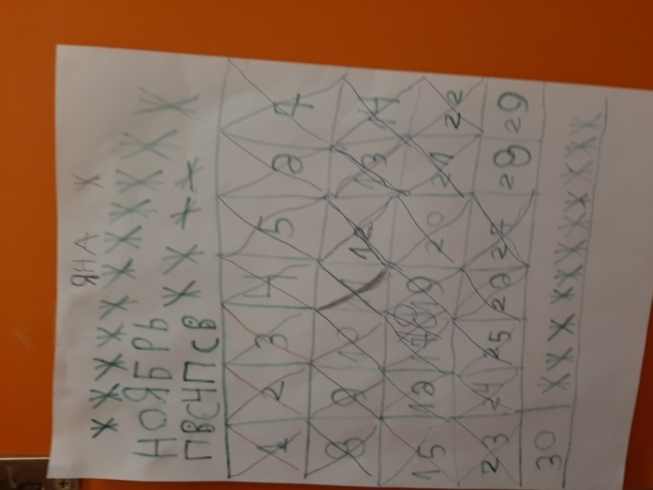 ЯНА
НОЯБРЬ
ПВСЧПСВ
1 2 3 4 5 6 7
8 9 10 12 13 14
15 16 19 20 21 22
23 24 25 26 27 28 29
30